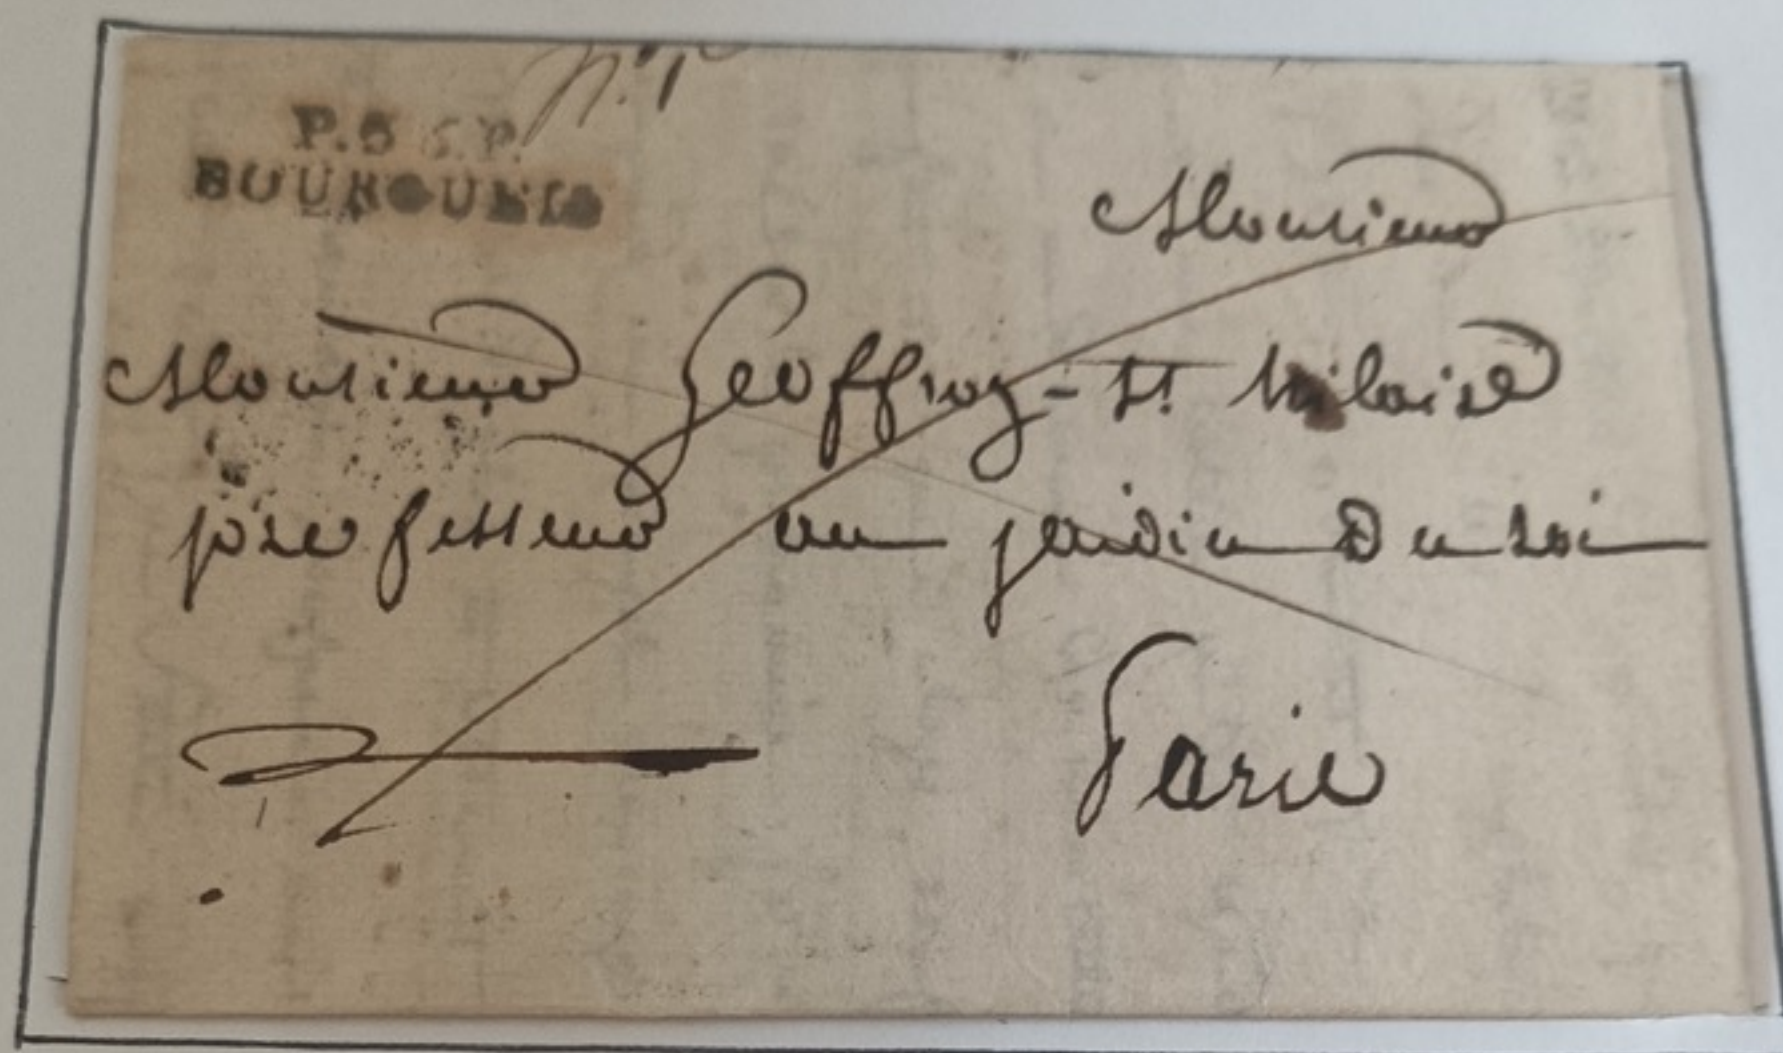 Monsieur
Monsieur Geoffroy - St. hilaire
professeur au jardin du roi
Paris